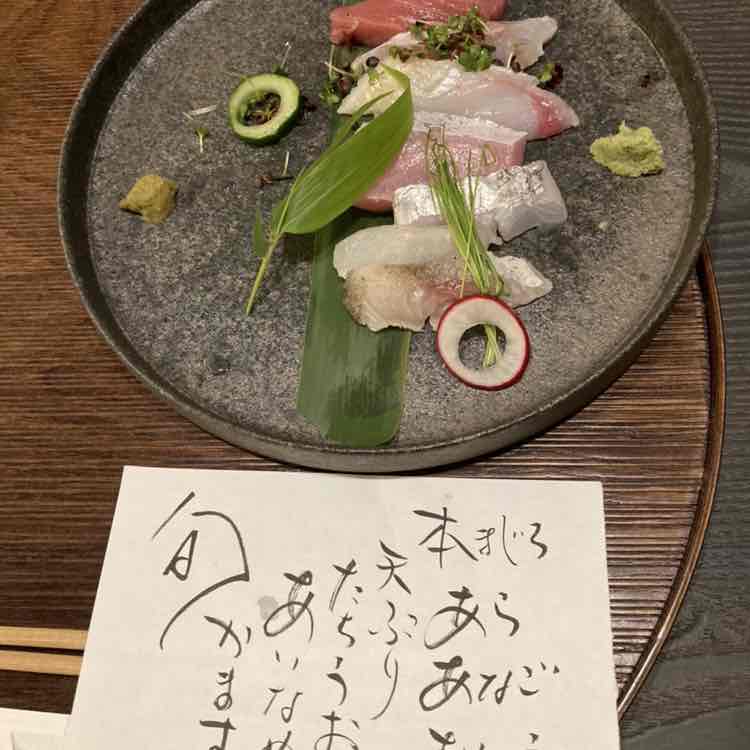 本まぐろ
あら
あなご
天ぶり
たちうお
あいなめ
かます
旬